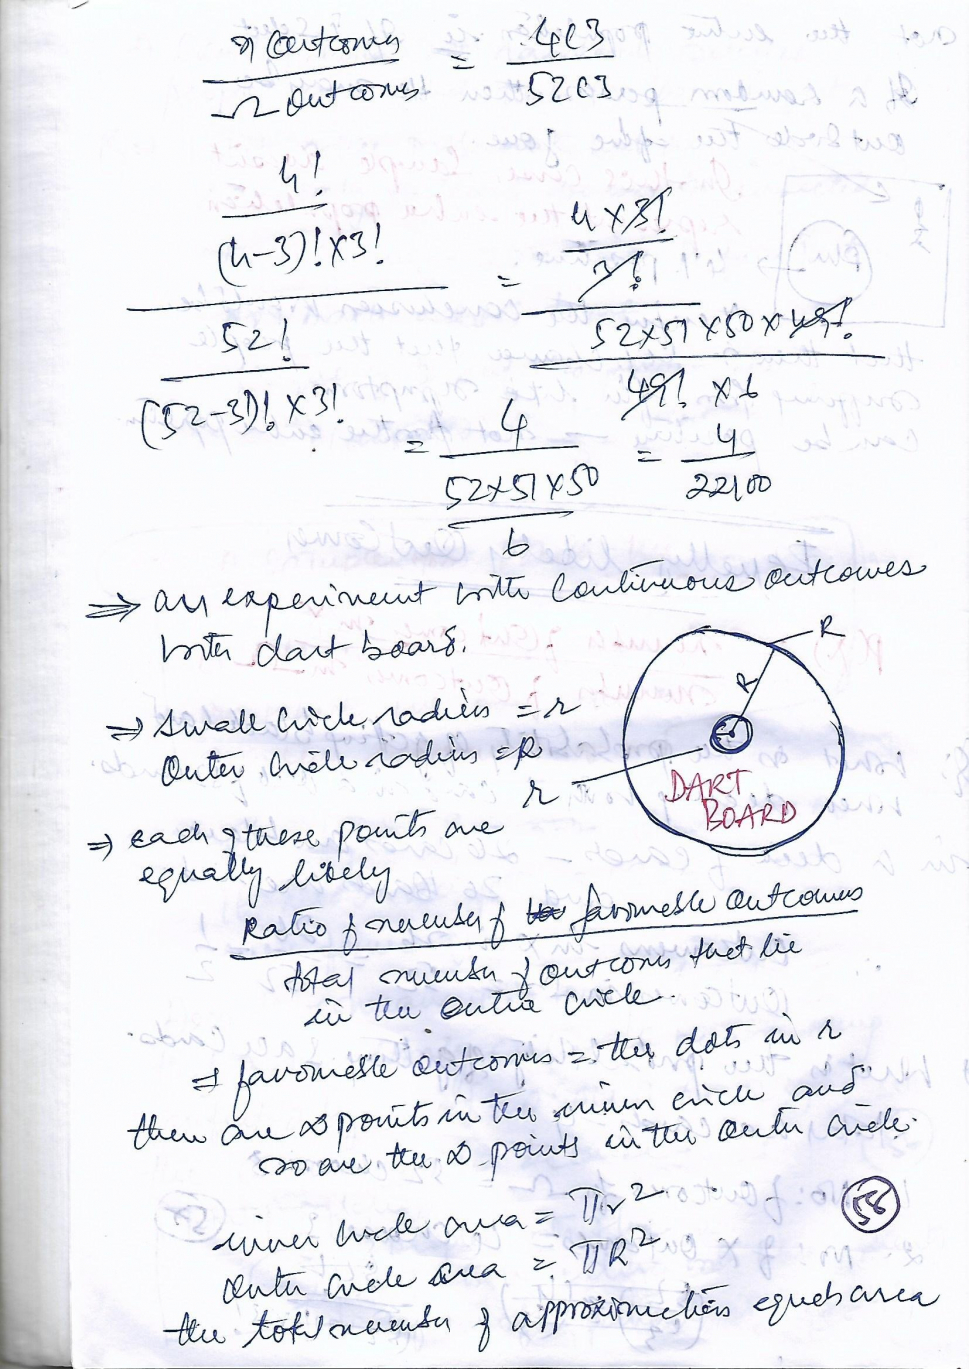 x outcomes / Ω outcomes = 4C3 / 52C3
4! / (4-3)! × 3!
52! / (52-3)! × 3!
= 4 × 3! / 3!
52 × 51 × 50 × 49! / 49! × 6
= 4 / 52×51×50 / 6 = 4 / 22100
⇒ an experiment with continuous outcomes
with dart board.
⇒ small circle radius = r
outer circle radius = R
R
R
r
DART
BOARD
⇒ each of these points are
equally likely
Ratio of number of favourable outcomes
total number of outcomes that lie
in the entire circle.
⇒ favourable outcomes = the dots in r
there are ∞ points in the inner circle and
so are the ∞ points in the outer circle.
inner circle area = πr²
outer circle area = πR²
58
the total number of approximation equals area